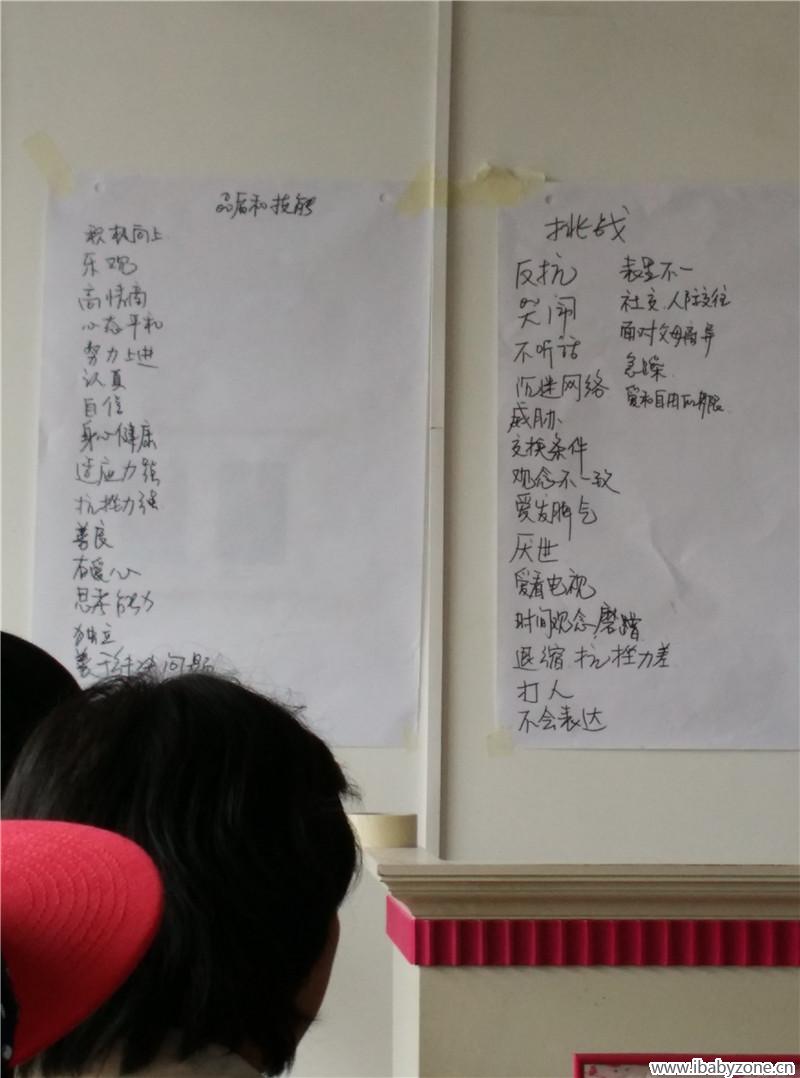 品质和技能
积极向上
乐观
高情商
心态平和
努力上进
认真
自信
身心健康
适应力强
抗挫力强
善良
有爱心
思考能力
独立
善于解决问题
挑战
反抗
哭闹
不听话
沉迷网络
威胁
交换条件
观念不一致
爱发脾气
厌世
爱看电视
时间观念 磨蹭
退缩 抗挫力差
打人
不会表达
表里不一
社交 人际交往
面对父母离异
急躁
爱和自由的界限
www.ibabyzone.cn